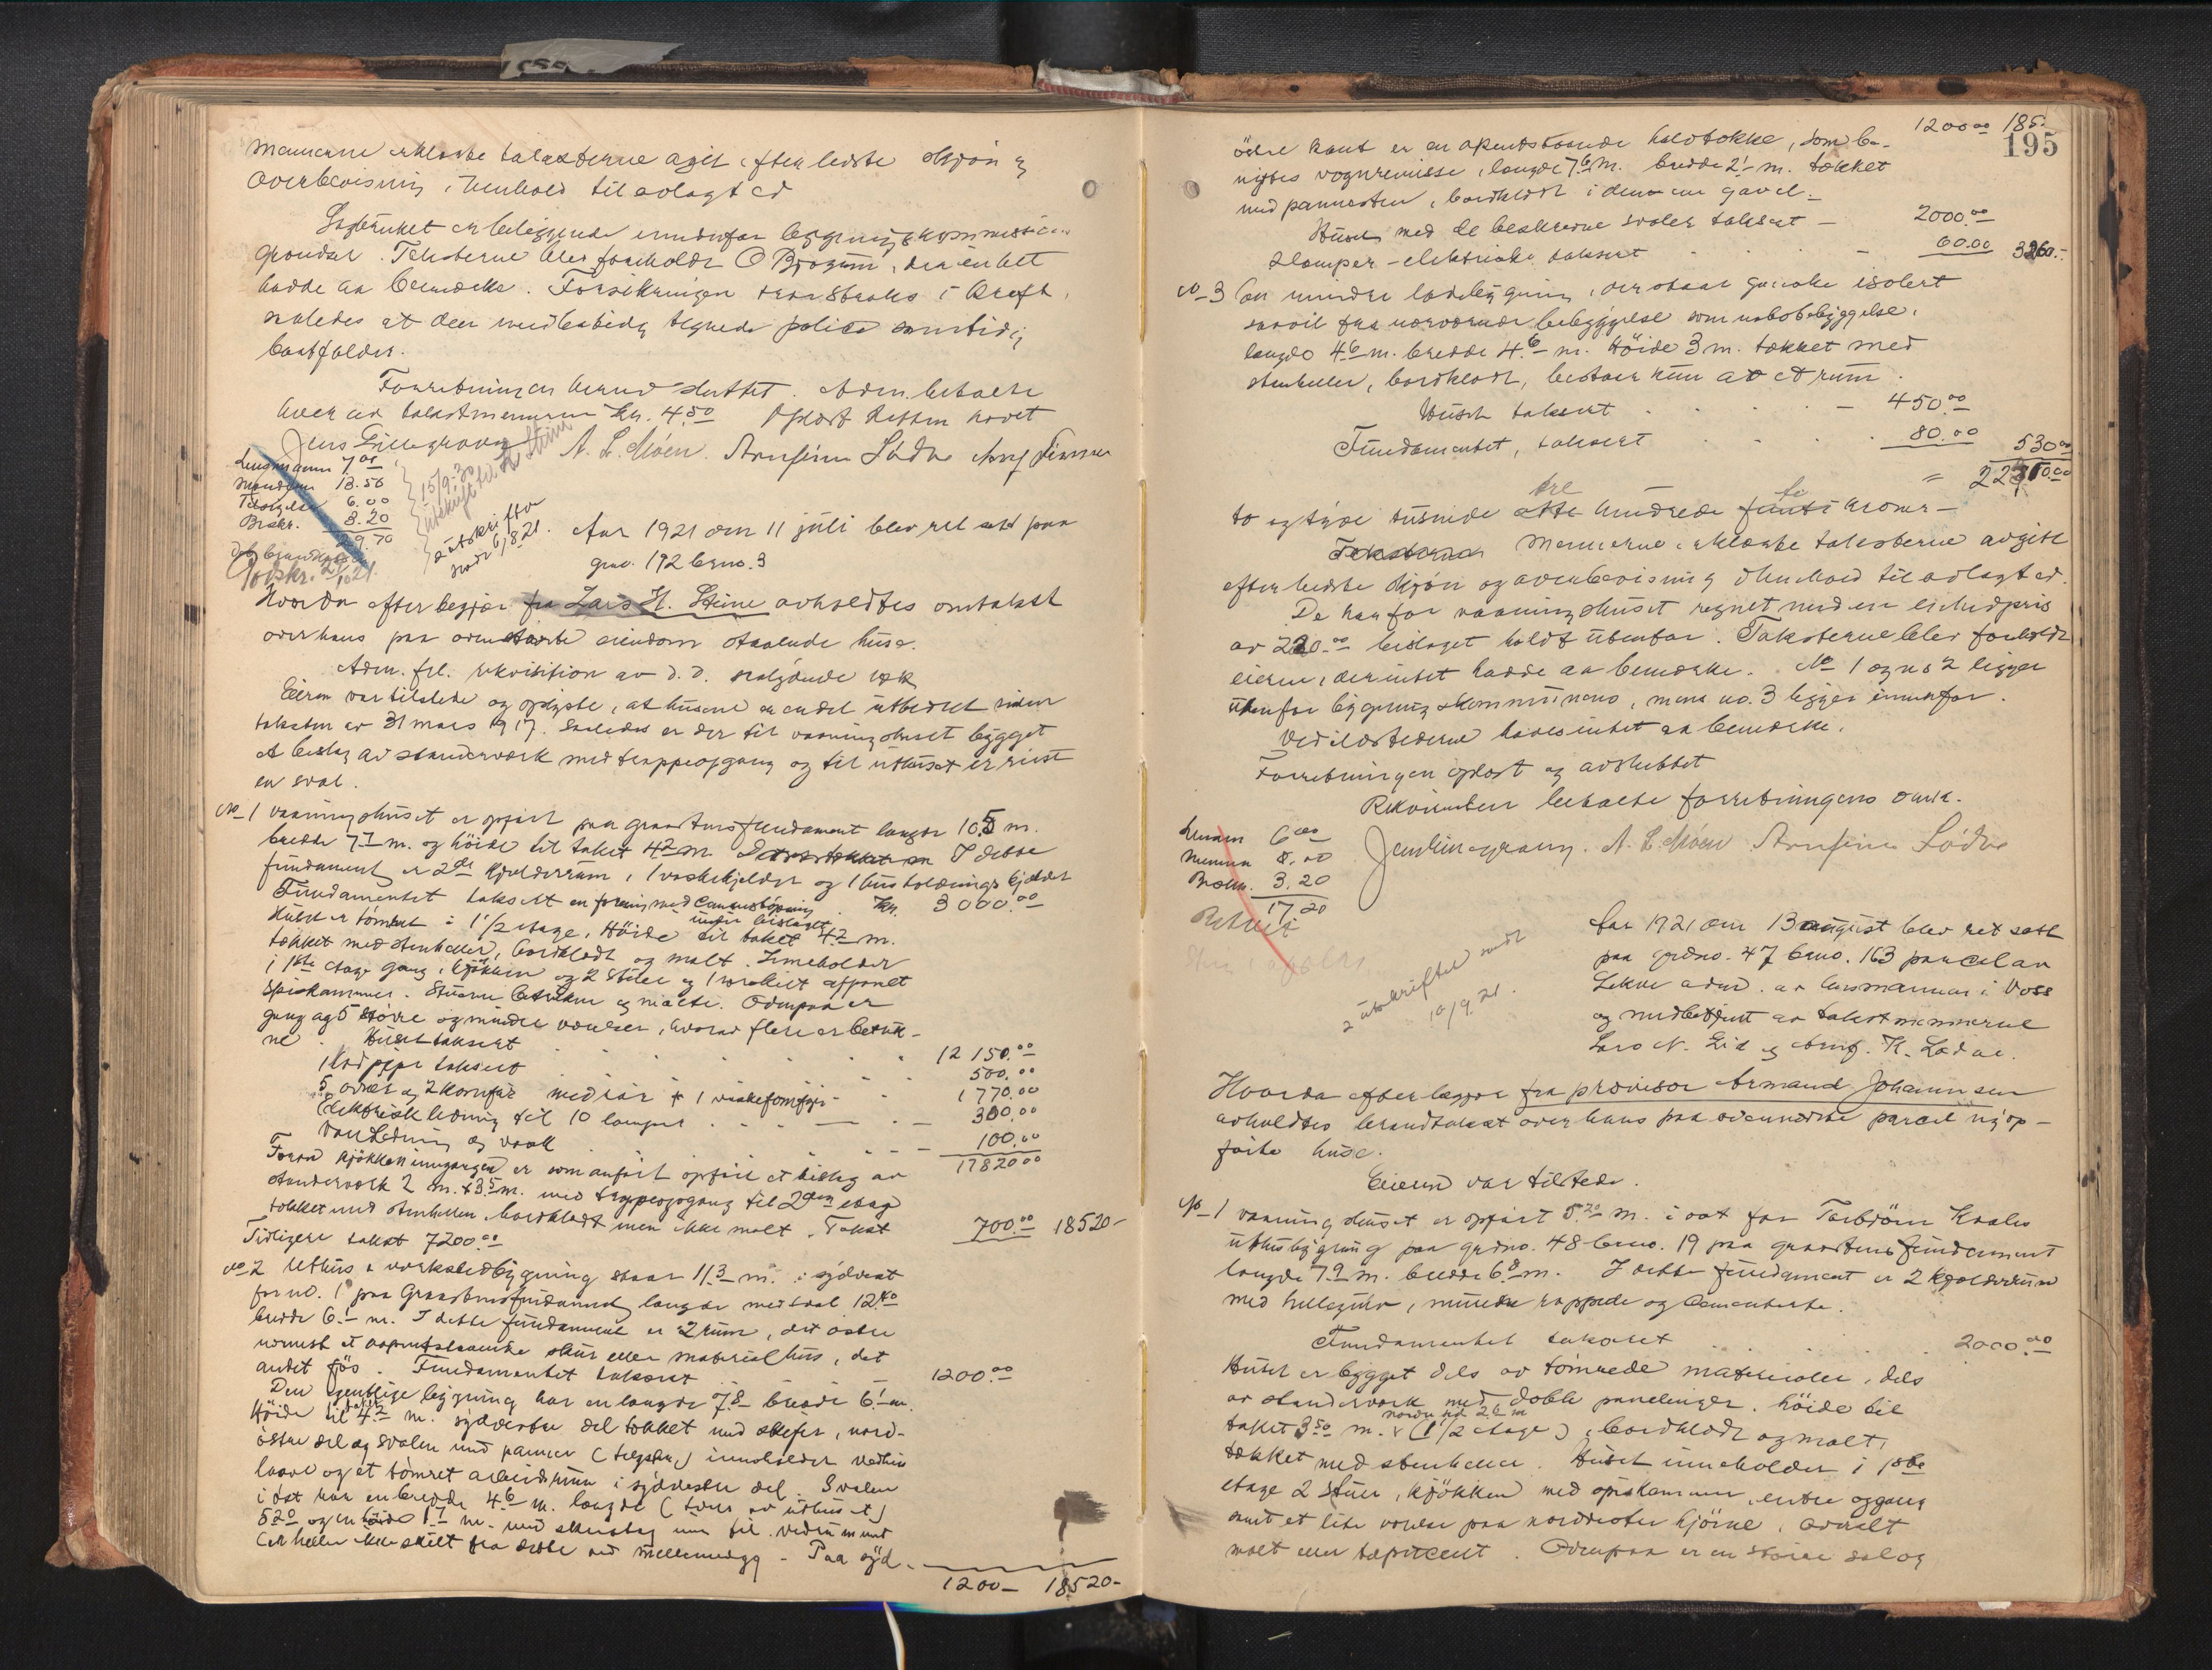 Mennerne erklærte taksterne avgit efter bedste skjøn og
overbevisning i henhold til avlagt ed
beliggende bygningskommissionens
Taksterne blev foreholdt O Brogum, der intet
hadde at bemerke. Forsikringen straks i kraft,
saaledes at den midlertidig tegnede police samtidig
bortfalder.
Forretningen hermed sluttet. Adm. betalte
hver av takstmennene kr. 4.50 Oplæst Retten hævet
Jens Lillegraven A. L. Møen. Arnfinn Lødve
Lensmann 7.00
Mændene 13.50
6.00
Beskr. 3.20
29.70
15/9-30
utskrift
2 utskrifter
sendt 6/8 21.
Aar 1921 den 11 juli blev ret sat paa
gno. 192 bno. 3
Hvorda efter begjær fra Lars H. Stene avholdtes omtakst
over hans paa ovennævnte eiendom staaende huse.
Adm. frl. rekvisition av d. d.
Eieren var tilstede og oplyste, at husene er endel utbedret siden
taksten av 31 mars 1917. Saaledes er der til vaaningshuset bygget
et beslag av standerverk med trappeopgang og til uthuset er reist
en sval.
No 1 vaaningshuset er opført paa graastensfundament længde 10.5 m.
bredde 7.7 m. og høide til taket 4.2 m. I dette
fundament er 2de kjelderrum, 1 vaskekjelder og 1 husholdnings kjelder
Fundamentet taksert Kr. 3000.00
under beslaget
Huset er tømret i 1 1/2 etage, Høide til taket 4.2 m.
tækket med stenheller, bordklædt og malt. Inneholder
i 1ste etage gang, kjøkken og 2 stuer og 1 avpanelt
spiskammer. Stuerne betrukne og malte. Ovenpaa er
gang og 5 større og mindre værelser, hvorav flere er betruk-
ne. Huset taksert 12 150.00
1 ildpipe taksert 500.00
5 ovner og 2 komfur med rør + 1 1770.00
Elektrisk ledning til 10 lamper 300.00
Vandledning og vask 100.00
17820.00
Foran kjøkkeninngangen er som anført opført et bislag av
standerverk 2 m. x 3.5 m. med trappeopgang til 2den etage
tækket med stenheller bordklædt men ikke malt. Takst 700.00 18520-
Tidligere takst 7200.00
No 2 Uthus & verkstedbygning staar 11.3 m. i sydvest
for no. 1 paa Graastensfundament længde med sval 12.40
bredde 6.1 m. I dette fundament er 2 rum, det østre
nærmest et skur eller materialhus, det
andet fjøs. Fundamentet taksert 1200.00
Den egentlige bygning har en længde 7.8 bredde 6.1 m.
Høide til taket 4.2 m. sydvestre del tækket med skifer, nord-
østre del og svalen med panner (teglsten) inneholder vedhus
laave og et tømret arbeidsrum i sydvestre del. Svalen
i øst har en bredde 4.6 m. længde (tvers av uthuset)
5.20 og en høide 1.7 m.
ikke skilt fra dette ved mellemvegg - Paa syd-
1200- 18520-
195
1200.00 185
østre kant er en aapentstaaende halvtække, som be-
nyttes vognremisse, længde 7.6 m. bredde 2.1 m. tækket
med pannesten, bordklædt i denne ene gavel.
Huset med de beskrevne svaler taksert - 2000.00
2 lamper - elektriske taksert 60.00 3260.-
No 3 En mindre ladebygning, der staar ganske isolert
saavel fra nærværende bebyggelse som nabobebyggelse.
længde 4.6 m. bredde 4.6 m. Høide 3 m. tækket med
stenheller, bordklædt, bestaar kun av et rum.
Huset taksert 450.00
Fundamentet, taksert 80.00 530.00
= 22310.00
to og tyve tusinde tre hundrede ti kroner-
Mennerne erklærte taksterne avgit
efter bedste skjøn og overbevisning i henhold til avlagt ed.
De har for vaaningshuset regnet med en enhetspris
av 220.00 beslaget holdt utenfor. Taksterne blev foreholdt
eieren, der intet hadde at bemerke. No 1 og no 2 ligger
utenfor bygningskommunens, mens no. 3 ligger innenfor.
Ved ildstederne haves intet at bemerke.
Forretningen oplæst og avsluttet
Rekvirenten betalte forretningens omk.
Lensm 6.00
Mennene 8.00
Beskr. 3.20
17.20
Betalt
Jens Lillegraven. A. L. Møen Arnfinn Lødve
2 utskrifter sendt
10/9 21.
Aar 1921 den 13 august blev ret satt
paa grdno. 47 bno. 163 parcel av
Lekve adm. av lensmannen i Voss
og medbetjent av takstmennerne
Lars N. Lid og Arnf. K. Lødve.
Hvorda efter begjær fra provisor Armand Johannsen
avholdtes brandtakst over hans paa ovennævnte parcel nyop-
førte huse.
Eieren var tilstede.
No 1 vaaningshuset er opført 5.20 m. i øst for Torbjørn
uthusbygning paa grdno. 48 bno. 19 paa graastensfundament
længde 7.9 m. bredde 6.8 m. I dette fundament er 2 kjelderrum
med hellegulv, murede rappede og cementerte.
Fundamentet taksert 2000.00
Huset er bygget dels av tømrede materialer, dels
av standerverk med doble panelinger. høide til
taket 3.50 m. (1 1/2 etage), bordklædt og malt,
tækket med stenheller. Huset inneholder i 1ste
etage 2 stuer, kjøkken med spiskammer, entre og gang
samt et lite værelse paa nordvestre hjørne, overalt
malt eller tapisert. Ovenpaa er en større sal og